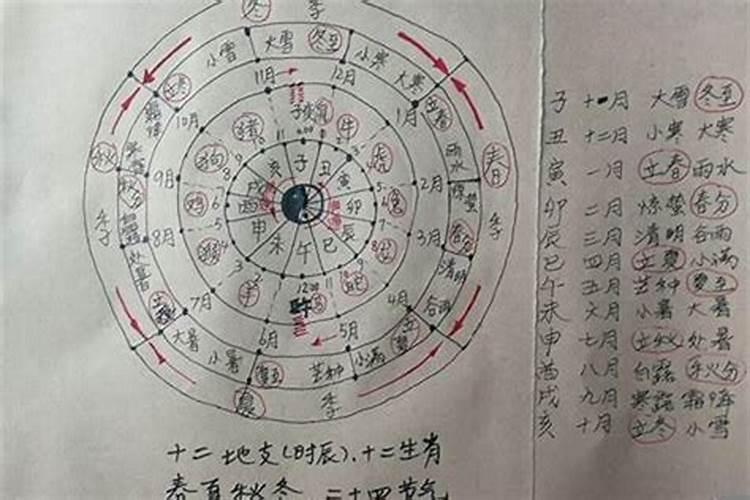 冬 季
小雪 大雪 冬至 小寒 大寒 立春 雨水 惊蛰 春分 清明 谷雨 立夏 小满 芒种 夏至 小暑 大暑 立秋 处暑 白露 秋分 寒露 霜降 立冬
11月 12月 1月 2月 3月 4月 5月 6月 7月 8月 9月 10月
鼠 牛 虎 兔 龙 蛇 马 羊 猴 鸡 狗 猪
子 丑 寅 卯 辰 巳 午 未 申 酉 戌 亥
春 季
夏 季
秋 季
子 十一月 大雪 冬至
丑 十二月 小寒 大寒
寅 一月 立春 雨水
卯 二月 惊蛰 春分
辰 三月 清明 谷雨
巳 四月 立夏 小满
午 五月 芒种 夏至
未 六月 小暑 大暑
申 七月 立秋 处暑
酉 八月 白露 秋分
戌 九月 寒露 霜降
亥 十月 立冬 小雪
十二地支(时辰)、十二生肖
春夏秋冬 二十四节气